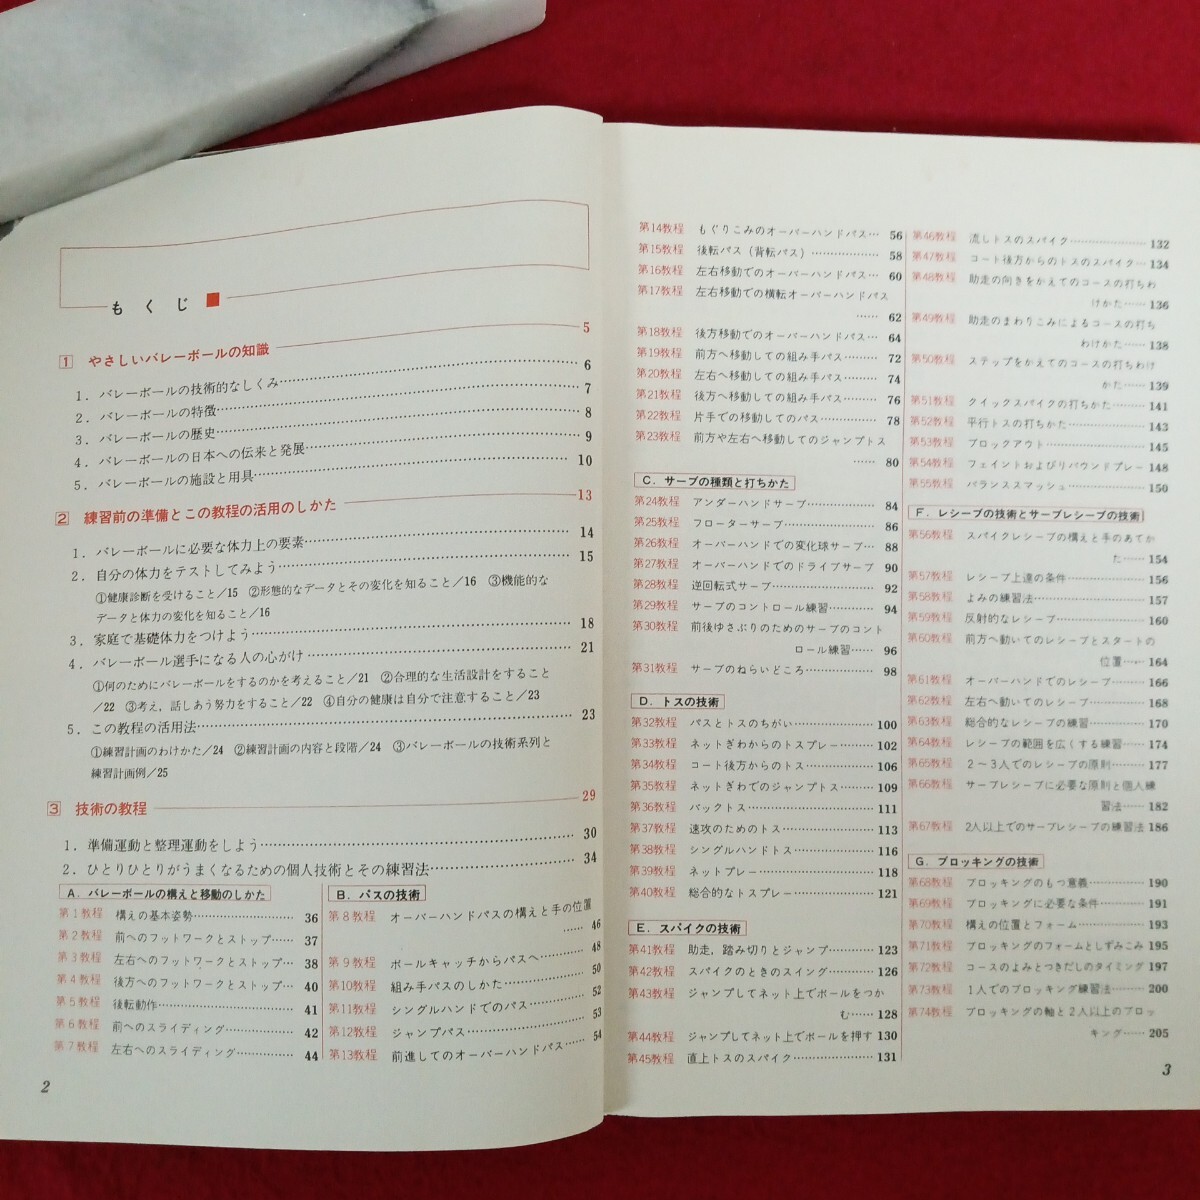 もくじ
1 やさしいバレーボールの知識 5
1．バレーボールの技術的なしくみ 6
2．バレーボールの特徴 7
3．バレーボールの歴史 8
4．バレーボールの日本への伝来と発展 9
5．バレーボールの施設と用具 10
2 練習前の準備とこの教程の活用のしかた 13
1．バレーボールに必要な体力上の要素 14
2．自分の体力をテストしてみよう 15
①健康診断を受けること/15 ②形態的なデータとその変化を知ること/16 ③機能的な
データと体力の変化を知ること/16
3．家庭で基礎体力をつけよう 18
4．バレーボール選手になる人の心がけ 21
①何のためにバレーボールをするのかを考えること/21 ②合理的な生活設計をすること
/22 ③考え，話しあう努力をすること/22 ④自分の健康は自分で注意すること/23
5．この教程の活用法 23
①練習計画のわけかた/24 ②練習計画の内容と段階/24 ③バレーボールの技術系列と
練習計画例/25
3 技術の教程 29
1．準備運動と整理運動をしよう 30
2．ひとりひとりがうまくなるための個人技術とその練習法 34
A．バレーボールの構えと移動のしかた
第1教程 構えの基本姿勢 36
第2教程 前へのフットワークとストップ 37
第3教程 左右へのフットワークとストップ 38
第4教程 後方へのフットワークとストップ 40
第5教程 後転動作 41
第6教程 前へのスライディング 42
第7教程 左右へのスライディング 44
B．パスの技術
第8教程 オーバーハンドパスの構えと手の位置
46
第9教程 ボールキャッチからパスへ 48
第10教程 組み手パスのしかた 50
第11教程 シングルハンドでのパス 52
第12教程 ジャンプパス 53
第13教程 前進してのオーバーハンドパス 54
2
第14教程 もぐりこみのオーバーハンドパス 56
第15教程 後転パス（背転パス） 58
第16教程 左右移動でのオーバーハンドパス 60
第17教程 左右移動での横転オーバーハンドパス
62
第18教程 後方移動でのオーバーハンドパス 64
第19教程 前方へ移動しての組み手パス 72
第20教程 左右へ移動しての組み手パス 74
第21教程 後方へ移動しての組み手パス 76
第22教程 片手での移動してのパス 78
第23教程 前方や左右へ移動してのジャンプトス
80
C．サーブの種類と打ちかた
第24教程 アンダーハンドサーブ 84
第25教程 フローターサーブ 86
第26教程 オーバーハンドでの変化球サーブ 88
第27教程 オーバーハンドでのドライブサーブ 90
第28教程 逆回転式サーブ 92
第29教程 サーブのコントロール練習 94
第30教程 前後ゆさぶりのためのサーブのコント
ロール練習 96
第31教程 サーブのねらいどころ 98
D．トスの技術
第32教程 パスとトスのちがい 100
第33教程 ネットぎわからのトスプレー 102
第34教程 コート後方からのトス 106
第35教程 ネットぎわでのジャンプトス 109
第36教程 バックトス 111
第37教程 速攻のためのトス 113
第38教程 シングルハンドトス 116
第39教程 ネットプレー 118
第40教程 総合的なトスプレー 121
E．スパイクの技術
第41教程 助走，踏み切りとジャンプ 123
第42教程 スパイクのときのスイング 126
第43教程 ジャンプしてネット上でボールをつか
む 128
第44教程 ジャンプしてネット上でボールを押す 130
第45教程 直上トスのスパイク 131
第46教程 流しトスのスパイク 132
第47教程 コート後方からのトスのスパイク 134
第48教程 助走の向きをかえてのコースの打ちわ
けかた 136
第49教程 助走のまわりこみによるコースの打ち
わけかた 138
第50教程 ステップをかえてのコースの打ちわけ
かた 139
第51教程 クイックスパイクの打ちかた 141
第52教程 平行トスの打ちかた 143
第53教程 ブロックアウト 145
第54教程 フェイントおよびリバウンドプレー 148
第55教程 バランススマッシュ 150
F．レシーブの技術とサーブレシーブの技術
第56教程 スパイクレシーブの構えと手のあてか
た 154
第57教程 レシーブ上達の条件 156
第58教程 よみの練習法 157
第59教程 反射的なレシーブ 160
第60教程 前方へ動いてのレシーブとスタートの
位置 164
第61教程 オーバーハンドでのレシーブ 166
第62教程 左右へ動いてのレシーブ 168
第63教程 総合的なレシーブの練習 170
第64教程 レシーブの範囲を広くする練習 174
第65教程 2～3人でのレシーブの原則 177
第66教程 サーブレシーブに必要な原則と個人練
習法 182
第67教程 2人以上でのサーブレシーブの練習法 186
G．ブロッキングの技術
第68教程 ブロッキングのもつ意義 190
第69教程 ブロッキングに必要な条件 191
第70教程 構えの位置とフォーム 193
第71教程 ブロッキングのフォームとしずみこみ 195
第72教程 コースのよみとつきだしのタイミング 197
第73教程 1人でのブロッキング練習法 200
第74教程 ブロッキングの軸と2人以上のブロッ
キング 205
3